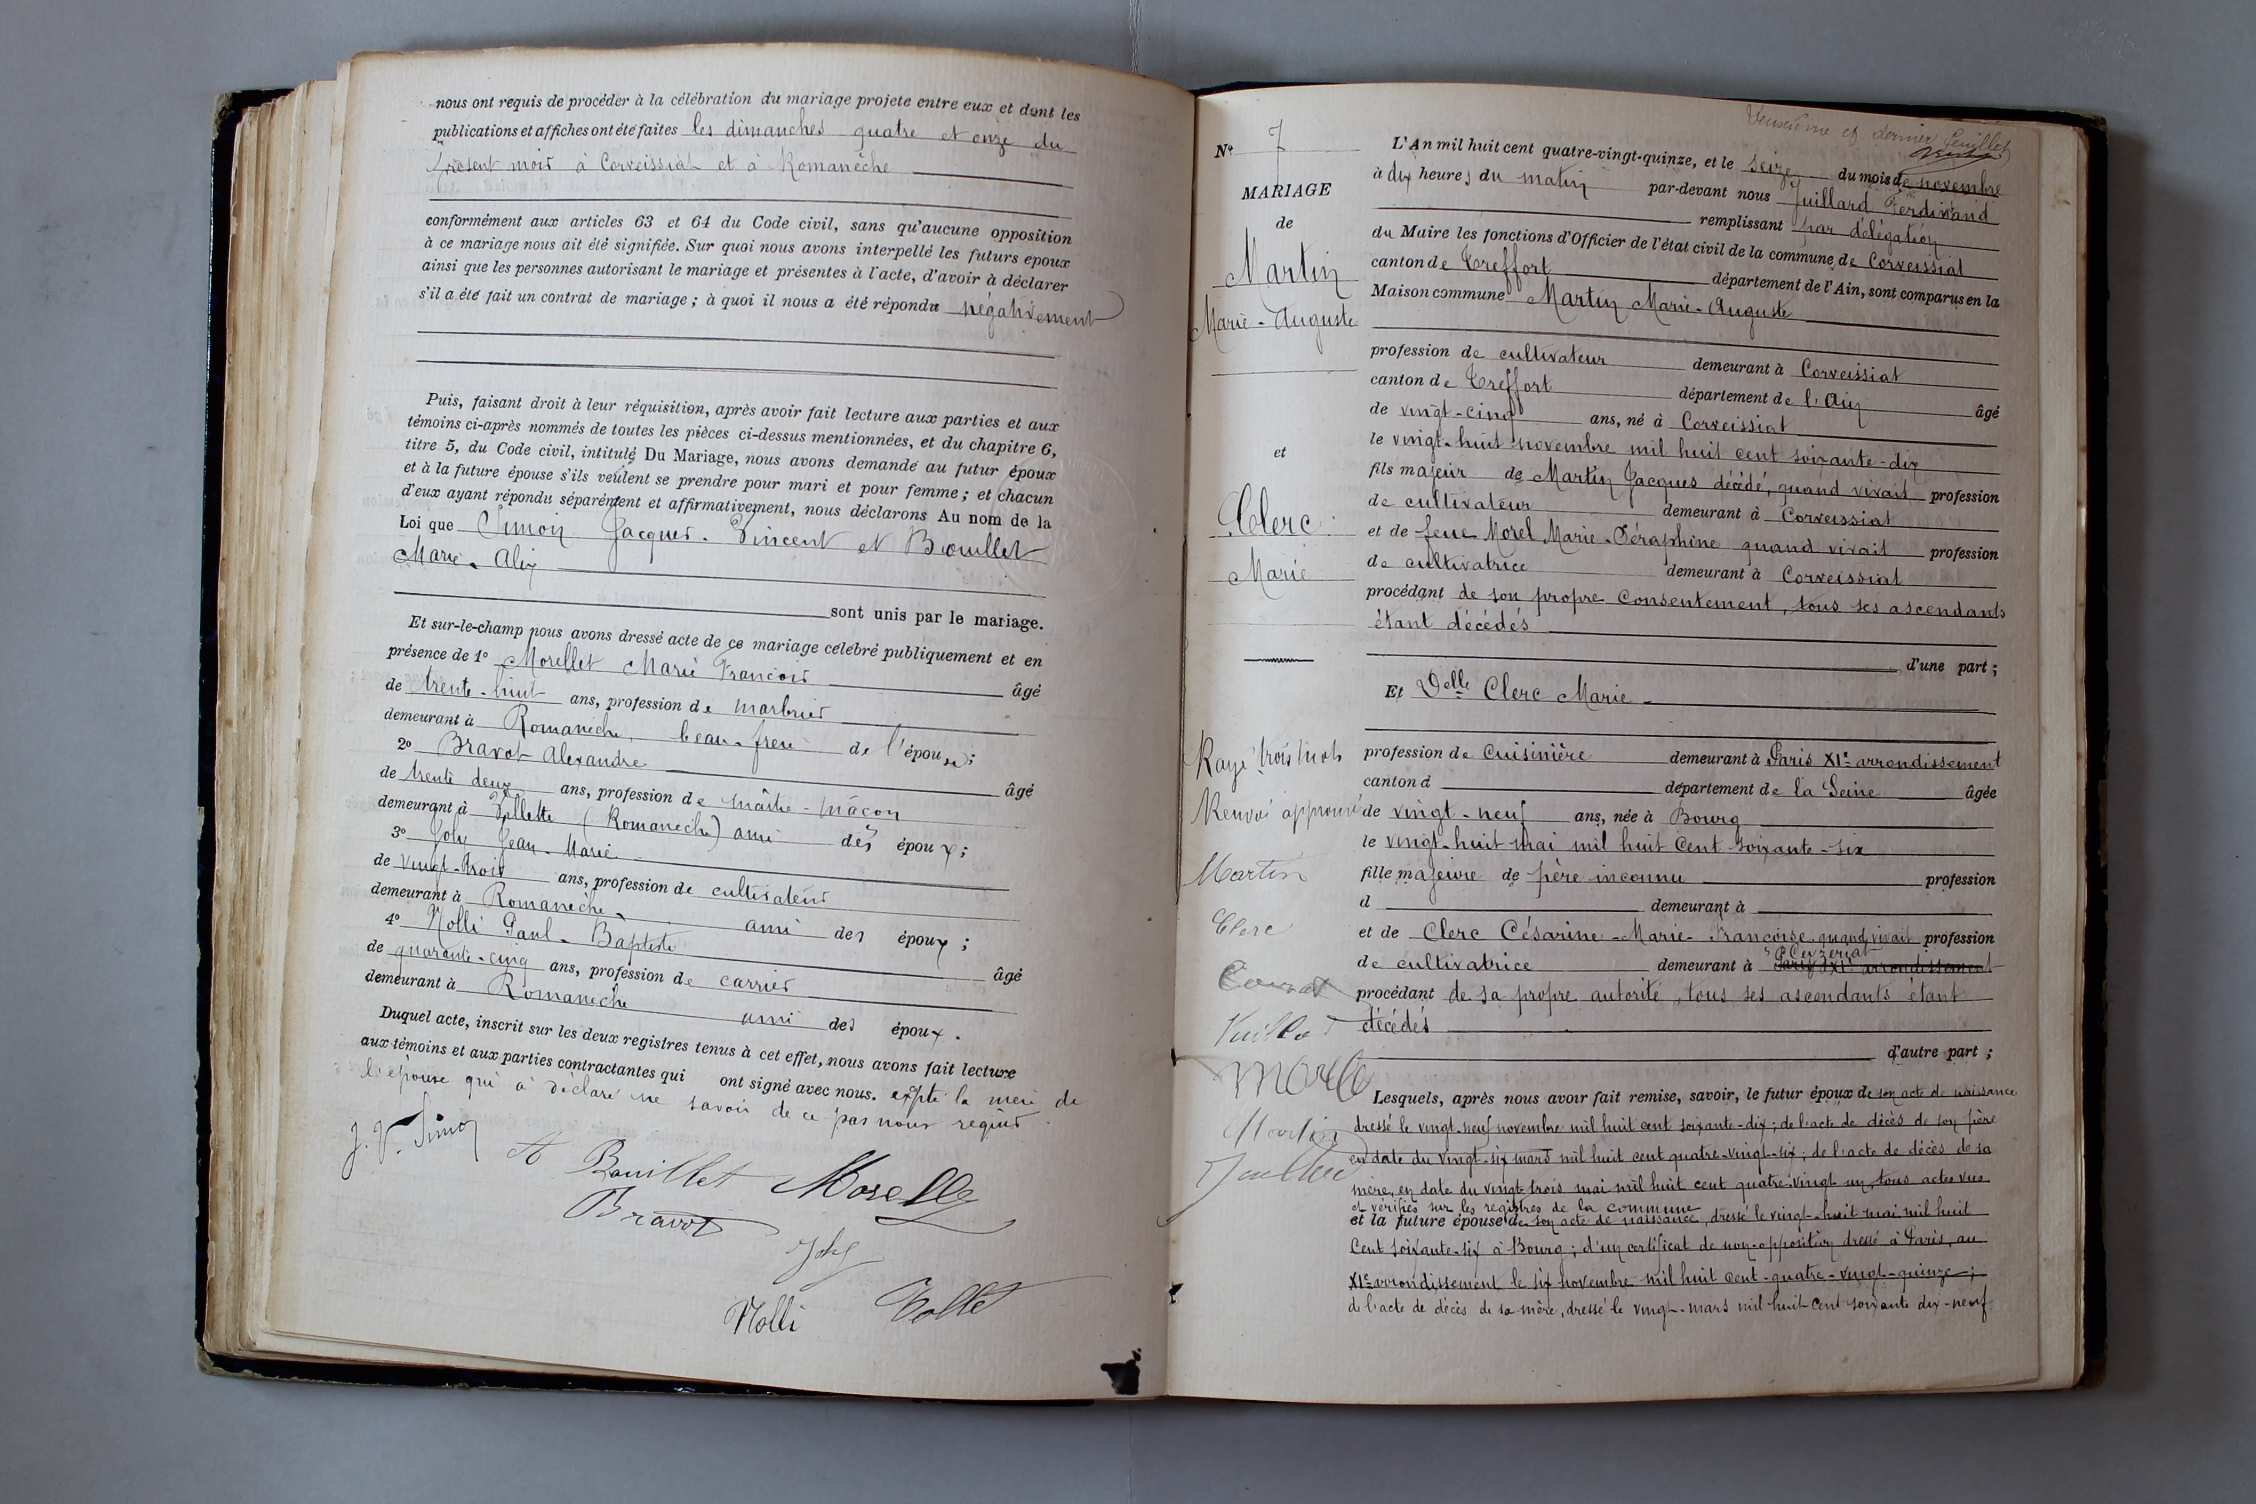 nous ont requis de procéder à la célébration du mariage projeté entre eux et dont les
publications et affiches ont été faites les dimanches quatre et onze du
présent mois à Corveissiat et à Romanèche
conformément aux articles 63 et 64 du Code civil, sans qu'aucune opposition
à ce mariage nous ait été signifiée. Sur quoi nous avons interpellé les futurs époux
ainsi que les personnes autorisant le mariage et présentes à l'acte, d'avoir à déclarer
s'il a été fait un contrat de mariage ; à quoi il nous a été répondu négativement
Puis, faisant droit à leur réquisition, après avoir fait lecture aux parties et aux
témoins ci-après nommés de toutes les pièces ci-dessus mentionnées, et du chapitre 6,
titre 5, du Code civil, intitulé Du Mariage, nous avons demandé au futur époux
et à la future épouse s'ils veulent se prendre pour mari et pour femme ; et chacun
d'eux ayant répondu séparément et affirmativement, nous déclarons Au nom de la
Loi que Simon Jacques-Vincent et Bouillet
Marie-Alix
sont unis par le mariage.
Et sur-le-champ nous avons dressé acte de ce mariage célébré publiquement et en
présence de 1° Morellet Marie François âgé
de trente-huit ans, profession de marbrier
demeurant à Romanèche, beau-frère de l'épouse ;
2° Bravot Alexandre âgé
de trente deux ans, profession de maître-maçon
demeurant à (Romanèche) ami des époux ;
3° Joly Jean-Marie
de vingt-trois ans, profession de cultivateur
demeurant à Romanèche, ami des époux ;
4° Nolli Paul-Baptiste âgé
de quarante-cinq ans, profession de carrier
demeurant à Romanèche ami des époux.
Duquel acte, inscrit sur les deux registres tenus à cet effet, nous avons fait lecture
aux témoins et aux parties contractantes qui ont signé avec nous. excpté la mère de
l'épouse qui a déclaré ne savoir de ce par nous requis.
J. V. Simon
A Bouillet Morellet
Bravot
Joly
Nolli
Deuxième et dernier feuillet
N° 7
MARIAGE
de
Martin
Marie-Auguste
et
Clerc
Marie
Rayé trois mots
Renvoi approuvé
Martin
Clerc
Morel
Martin
L'An mil huit cent quatre-vingt-quinze, et le seize du mois de novembre
à dix heures du matin par-devant nous Juillard Ferdinand
remplissant par délégation
du Maire les fonctions d'Officier de l'état civil de la commune de Corveissiat
canton de Treffort département de l'Ain, sont comparus en la
Maison commune Martin Marie-Auguste
profession de cultivateur demeurant à Corveissiat
canton de Treffort département de l'Ain âgé
de vingt-cinq ans, né à Corveissiat
le vingt-huit novembre mil huit cent soixante-dix
fils majeur de Martin Jacques décédé, quand vivait profession
de cultivateur demeurant à Corveissiat
et de feue Morel Marie-Séraphine quand vivait profession
de cultivatrice demeurant à Corveissiat
procédant de son propre consentement, tous ses ascendants
étant décédés
d'une part ;
Et Delle Clerc Marie
profession de cuisinière demeurant à Paris XIe arrondissement
canton d département de la Seine âgée
de vingt-neuf ans, née à Bourg
le vingt-huit mai mil huit cent soixante-six
fille majeure de père inconnu profession
d demeurant à
et de Clerc Césarine-Marie-Françoise quand vivait profession
de cultivatrice demeurant à Paris XIe arrondissement Ceyzériat
procédant de sa propre autorité, tous ses ascendants étant
décédés
d'autre part ;
Lesquels, après nous avoir fait remise, savoir, le futur époux de son acte de naissance
dressé le vingt-neuf novembre mil huit cent soixante-dix ; de l'acte de décès de son père
en date du vingt-six mars mil huit cent quatre-vingt-six ; de l'acte de décès de sa
mère, en date du vingt-trois mai mil huit cent quatre-vingt un, tous actes vus
et vérifiés sur les registres de la commune
et la future épouse de son acte de naissance, dressé le vingt-huit mai mil huit
cent soixante-six à Bourg ; d'un certificat de non-opposition dressé à Paris, au
XIe arrondissement le six novembre mil huit cent-quatre-vingt-quinze ;
de l'acte de décès de sa mère, dressé le vingt-mars mil huit cent soixante dix-neuf